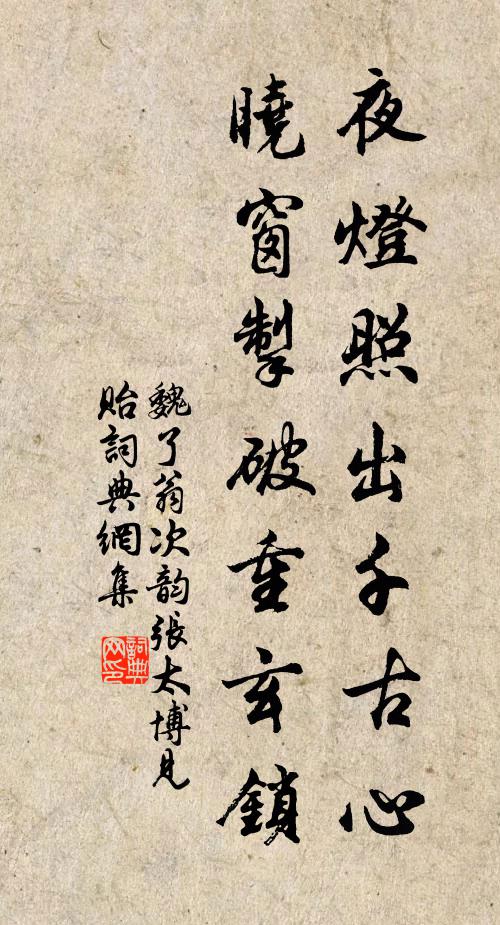 夜燈照出千古心
曉窗掣破重玄鎖
魏了翁次韵張太博見
貽詞典網集
詞典网印